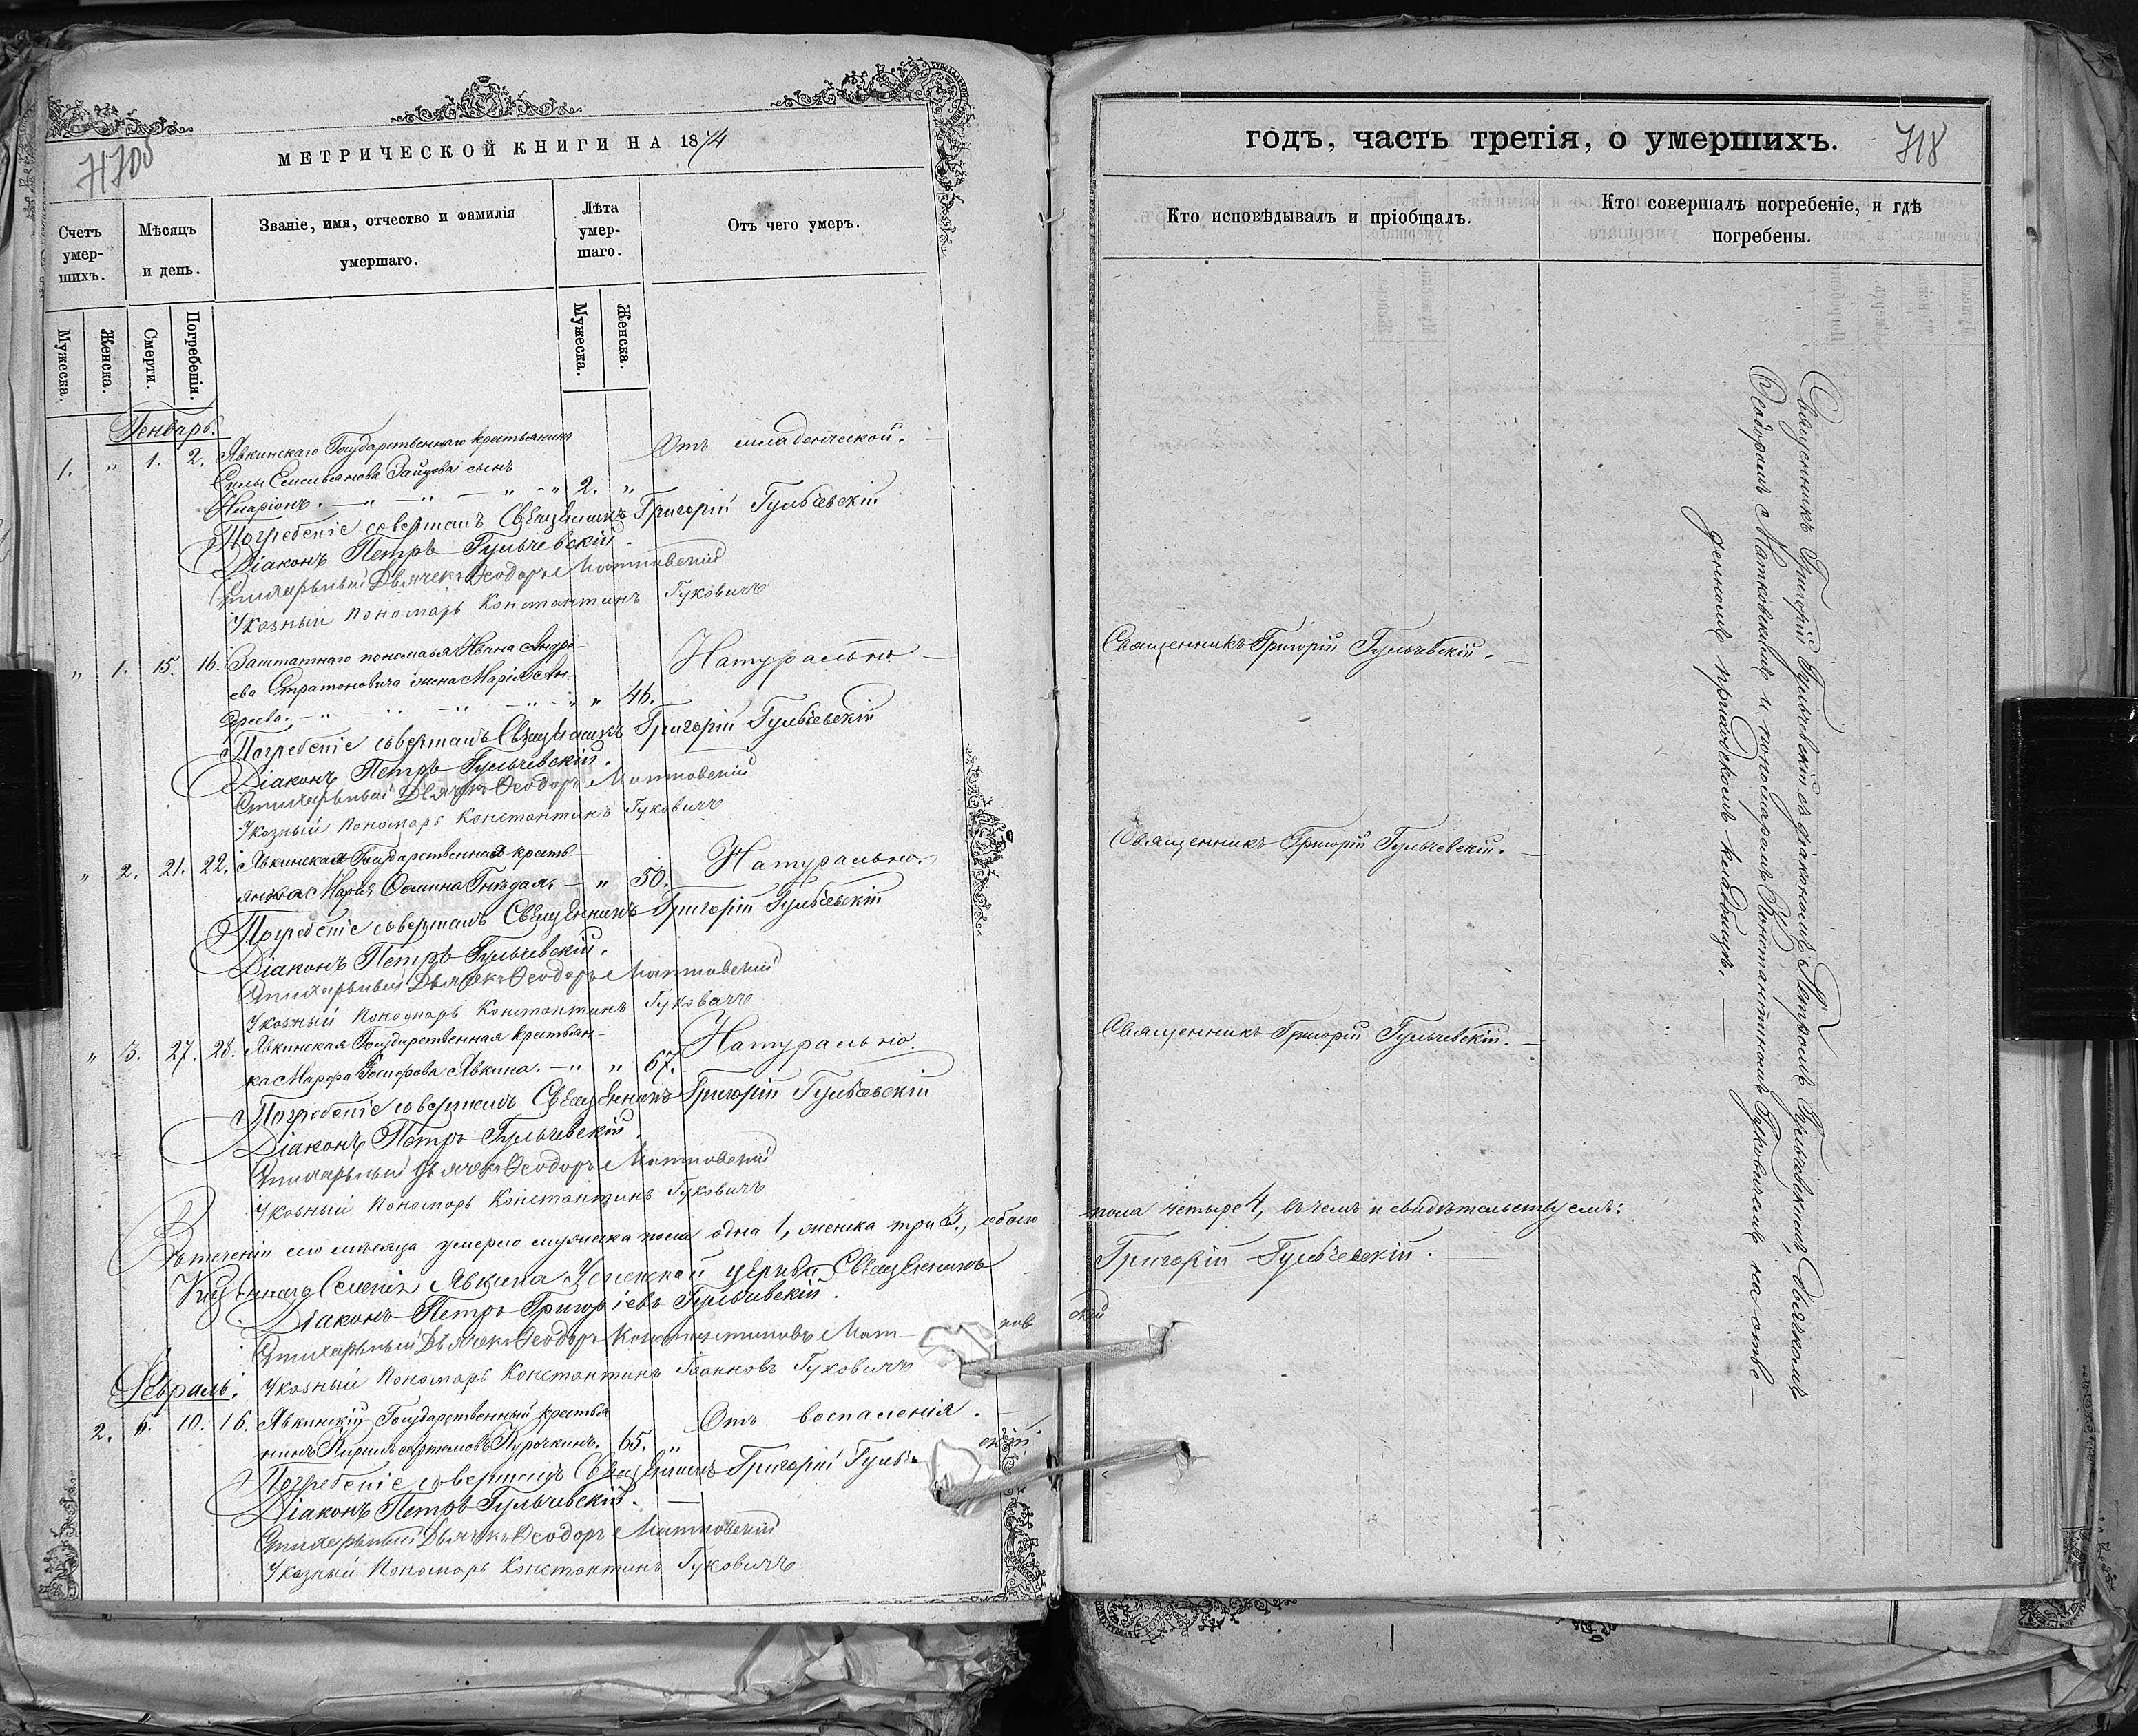 МЕТРИЧЕСКОЙ КНИГИ НА 1874
Счетъ умер-шихъ.
Мѣсяцъ и день.
Званіе, имя, отчество и фамилія умершаго.
Лѣта умер-шаго.
Отъ чего умеръ.
Мужеска.
Женска.
Смерти.
Погребенія.
Мужеска.
Женска.
Генварь.
1. " 1. 2. Явкинскаго Государственнаго крестьянина
Отъ младенческой.
Силы Емельянова Зайцева сынъ
Иларіонъ. 2. "
Погребеніе совершалъ Священникъ Григорій Гульчевскій
Діаконъ Петръ Гульчевскій.
Стихарный Дьячекъ Ѳеодоръ Матковскій
Указный Пономарь Константинъ Гуковичъ
" 1. 15. 16. Заштатнаго пономаря Ивана Андре-
Натурально
ева Стратоновича жена Марія Ан-
дреева. " 46.
Погребеніе совершалъ Священникъ Григорій Гульчевскій
Діаконъ Петръ Гульчевскій.
Стихарный Дьячекъ Ѳеодоръ Матковскій
Указный Пономарь Константинъ Гуковичъ
" 2. 21. 22. Явкинская Государственная кресть-
Натурально
янка Марія Ѳомина Гнѣздаль " 50.
Погребеніе совершалъ Священникъ Григорій Гульчевскій
Діаконъ Петръ Гульчевскій.
Стихарный Дьячекъ Ѳеодоръ Матковскій
Указный Пономарь Константинъ Гуковичъ
" 3. 27. 28. Явкинская Государственная крестьян-
Натурально.
ка Марфа Явкина. " 67.
Погребеніе совершалъ Священникъ Григорій Гульчевскій
Діаконъ Петръ Гульчевскій.
Стихарный Дьячекъ Ѳеодоръ Матковскій
Указный Пономарь Константинъ Гуковичъ
Въ теченіи сего мѣсяца умерло мужеска пола одна 1, женска три 3, обоего
Селенія Явкина Успенской церкви Священникъ
Діаконъ Петръ Григоріевъ Гульчевскій.
Стихарный Дьячекъ Ѳеодоръ Константиновъ Мат-ков
Указный Пономарь Константинъ Іоанновъ Гуковичъ
Февраль.
2. " 10. 16. Явкинскій Государственный крестья
Отъ воспаленія.
нинъ Курочкинъ. 65. "
Погребеніе совершалъ Священникъ Григорій Гульче скій
Діаконъ Петръ Гульчевскій.
Стихарный Дьячекъ Ѳеодоръ Матковскій
Указный Пономарь Константинъ Гуковичъ
годъ, часть третія, о умершихъ.
718
Кто исповѣдывалъ и пріобщалъ.
Кто совершалъ погребеніе, и гдѣ погребены.
Священникъ Григорій Гульчевскій.
Священникъ Григорій Гульчевскій.
Священникъ Григорій Гульчевскій.
пола четыре 4, въ чемъ и свидѣтельствуемъ:
Григорій Гульчевскій.
скій
Священникъ Григорій Гульчевскій съ діакономъ Петромъ Гульчевскимъ, дьячкомъ
Ѳеодоромъ Матковскимъ и пономаремъ Константиномъ Гуковичемъ на отве-
денномъ приходскомъ кладбищѣ.